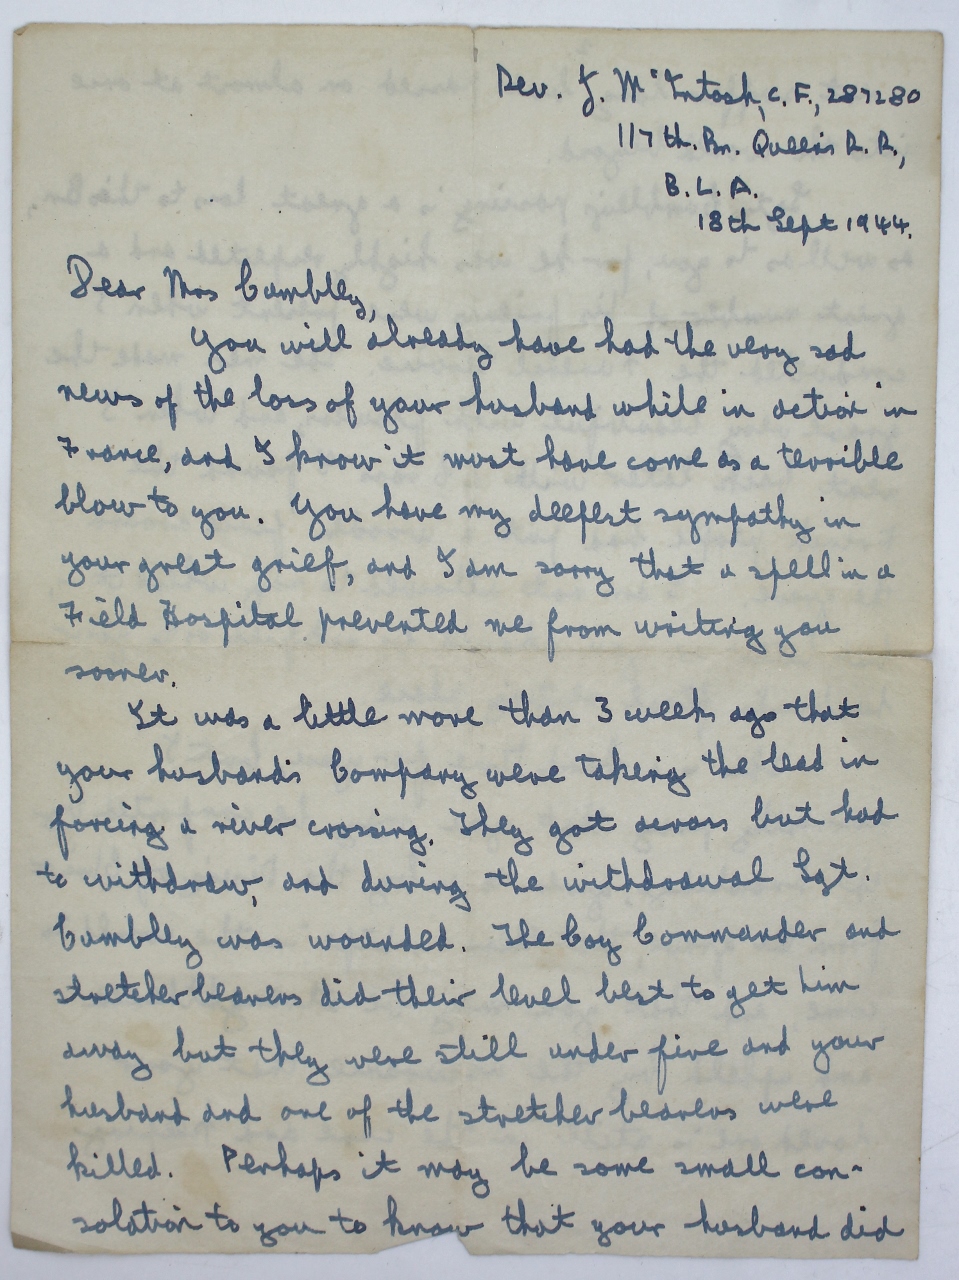 Rev. J. McIntosh, C.F., 287280
117th. Bn. Queen's R.R.,
B.L.A.
18th Sept 1944.
Dear Mrs Cumbley,
You will already have had the very sad
news of the loss of your husband while in action in
France, and I know it must have come as a terrible
blow to you. You have my deepest sympathy in
your great grief, and I am sorry that a spell in a
Field Hospital prevented me from writing you
sooner.
It was a little more than 3 weeks ago that
your husband's Company were taking the lead in
forcing a river crossing. They got across but had
to withdraw, and during the withdrawal Sgt.
Cumbley was wounded. The Coy Commander and
stretcher bearers did their level best to get him
away but they were still under fire and your
husband and one of the stretcher bearers were
killed. Perhaps it may be some small con-
solation to you to know that your husband did